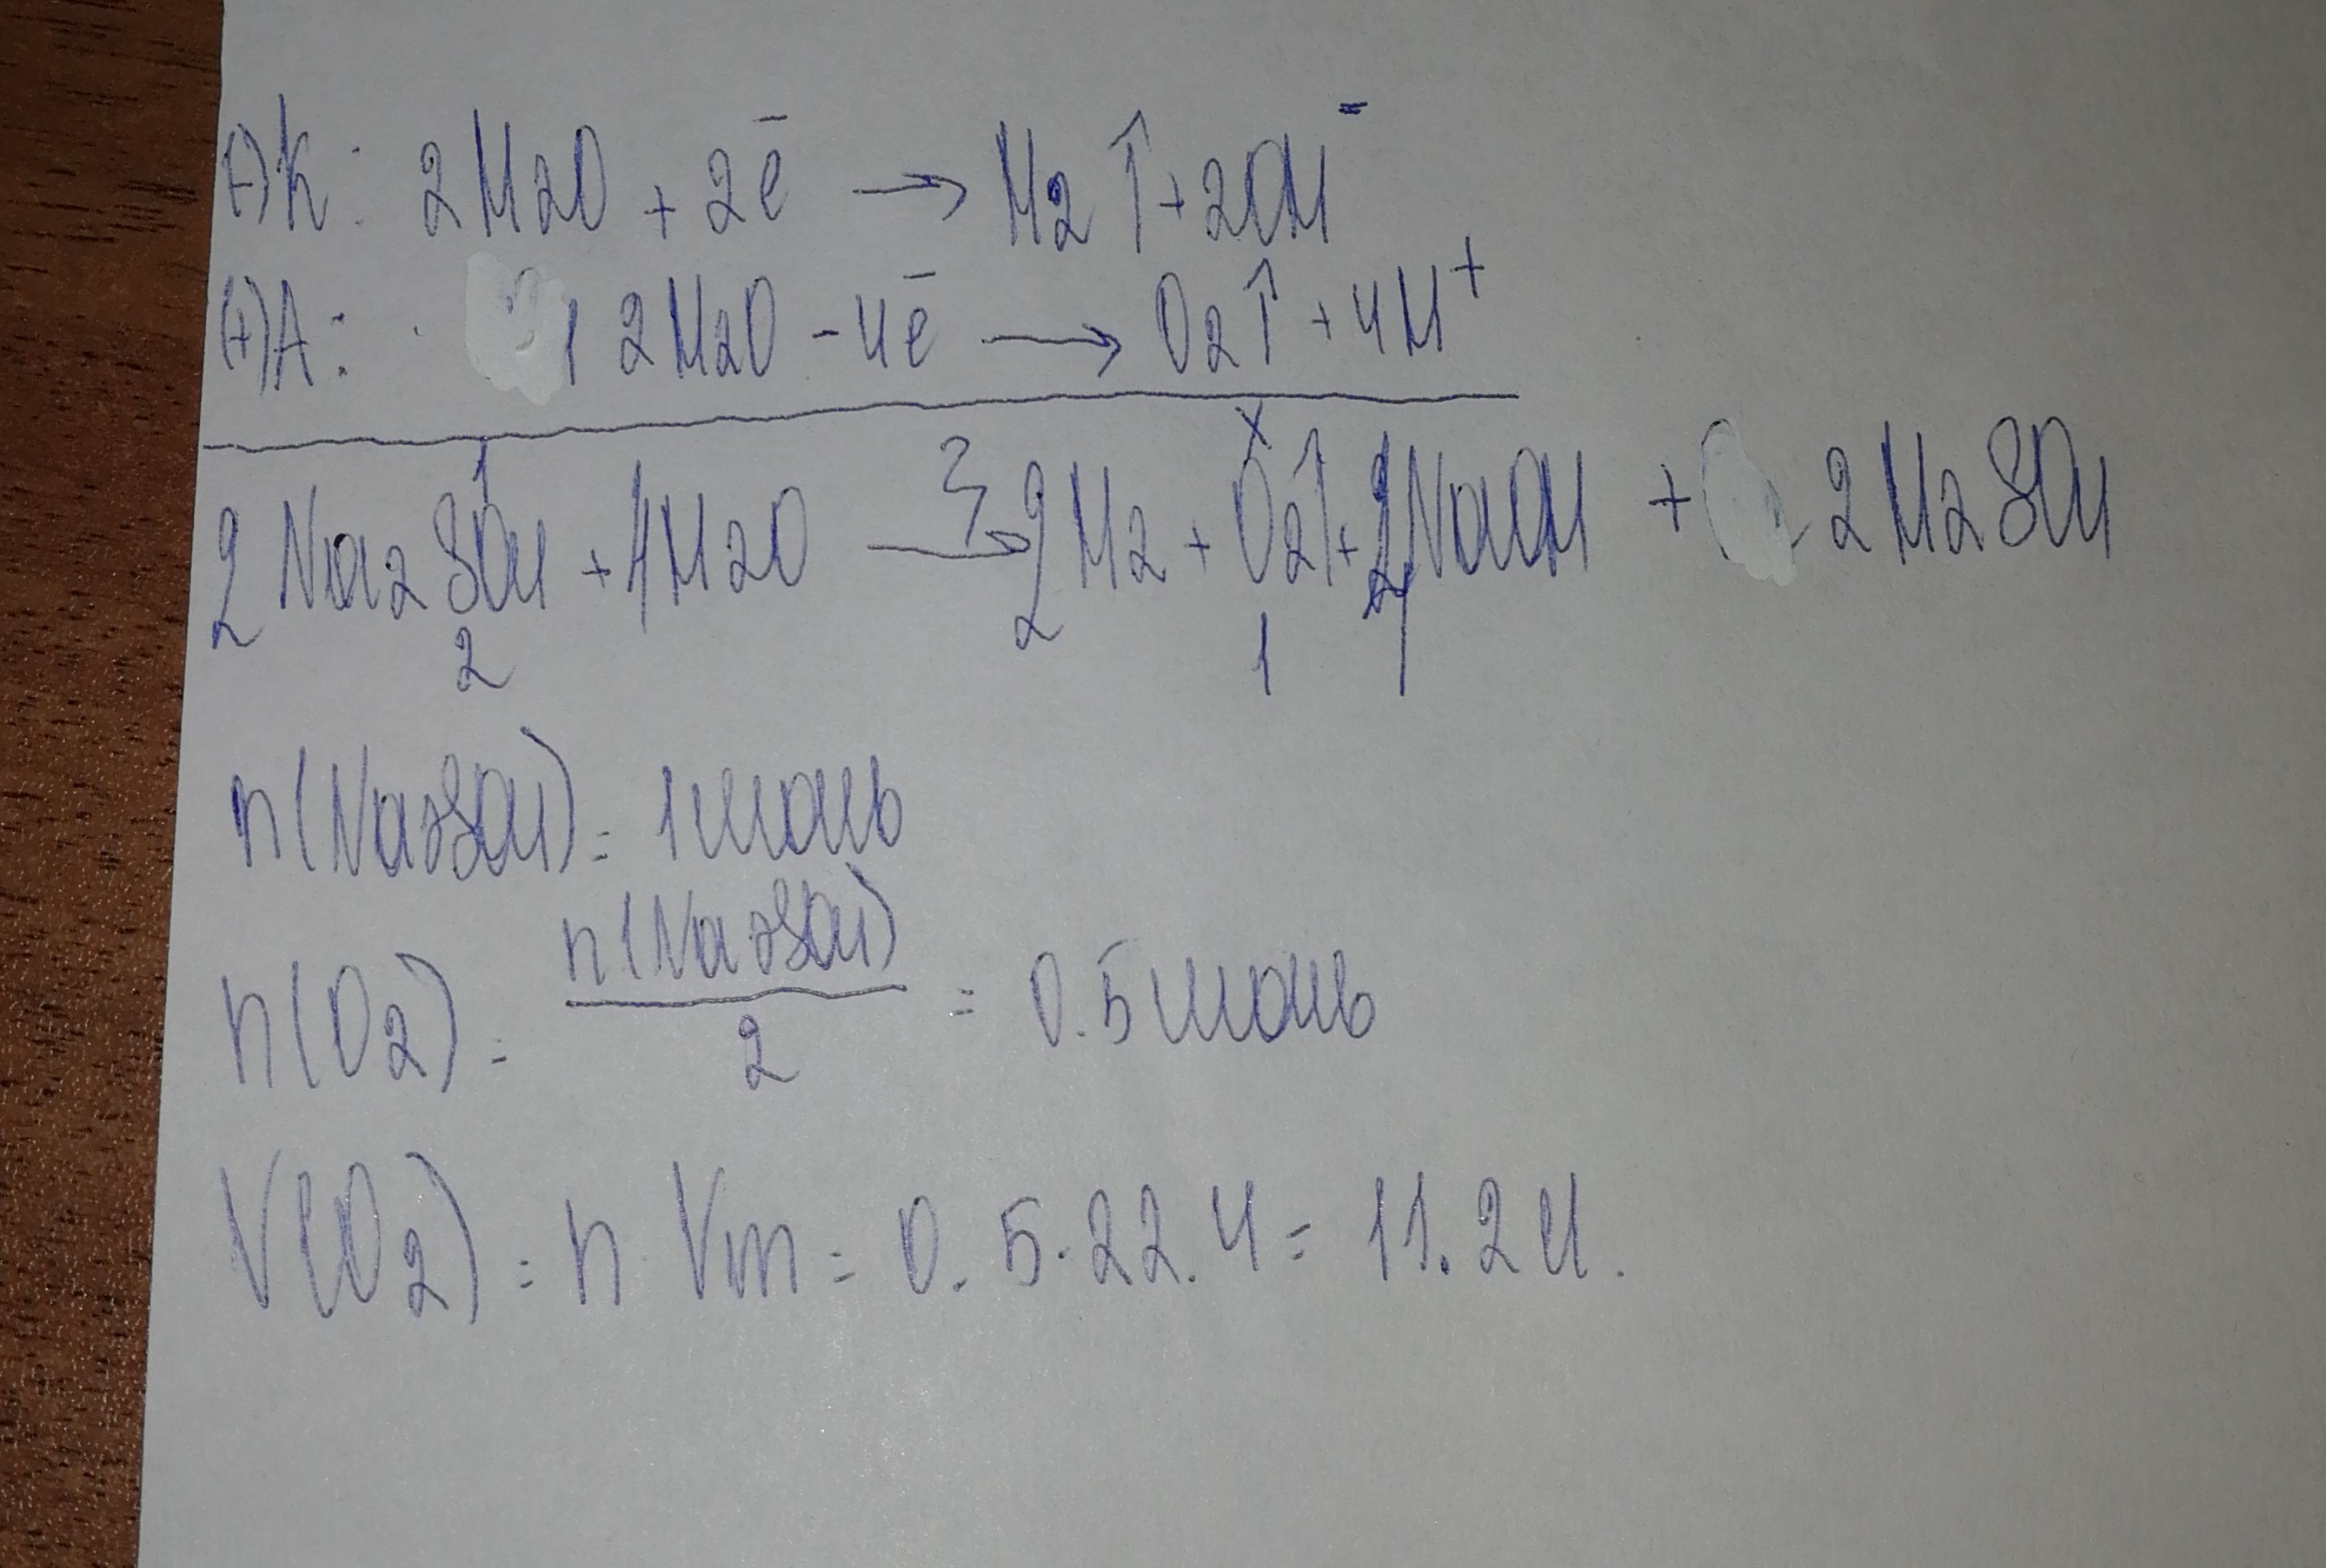 (-)К: 2H2O + 2ē → H2↑ + 2OH⁻
(+)A: 2H2O - 4ē → O2↑ + 4H⁺
1 x
2 Na2SO4 + 4H2O → 2H2 + O2↑ + 4NaOH + 2H2SO4
2 1
n(Na2SO4) = 1 моль
n(O2) = n(Na2SO4) / 2 = 0.5 моль
V(O2) = n · Vm = 0.5 · 22.4 = 11.2 л.